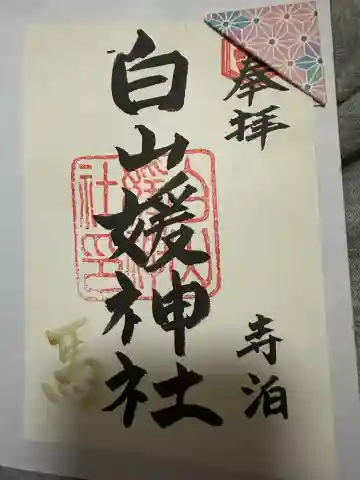 奉拝
寺泊
白山媛神社
馬